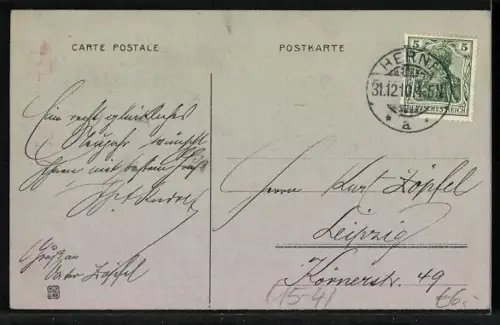 CARTE POSTALE
POSTKARTE
5 5
HERNE
31.12.10. 4-5 N
DEUTSCHES REICH
* a *
Ein recht glückliches
Neujahr wünscht
Ihnen mit bestem Gruß
Gruß an
Vater Zöpfel
Herrn Kurt Zöpfel
Leipzig
Körnerstr. 49
(15-4)
€6,-